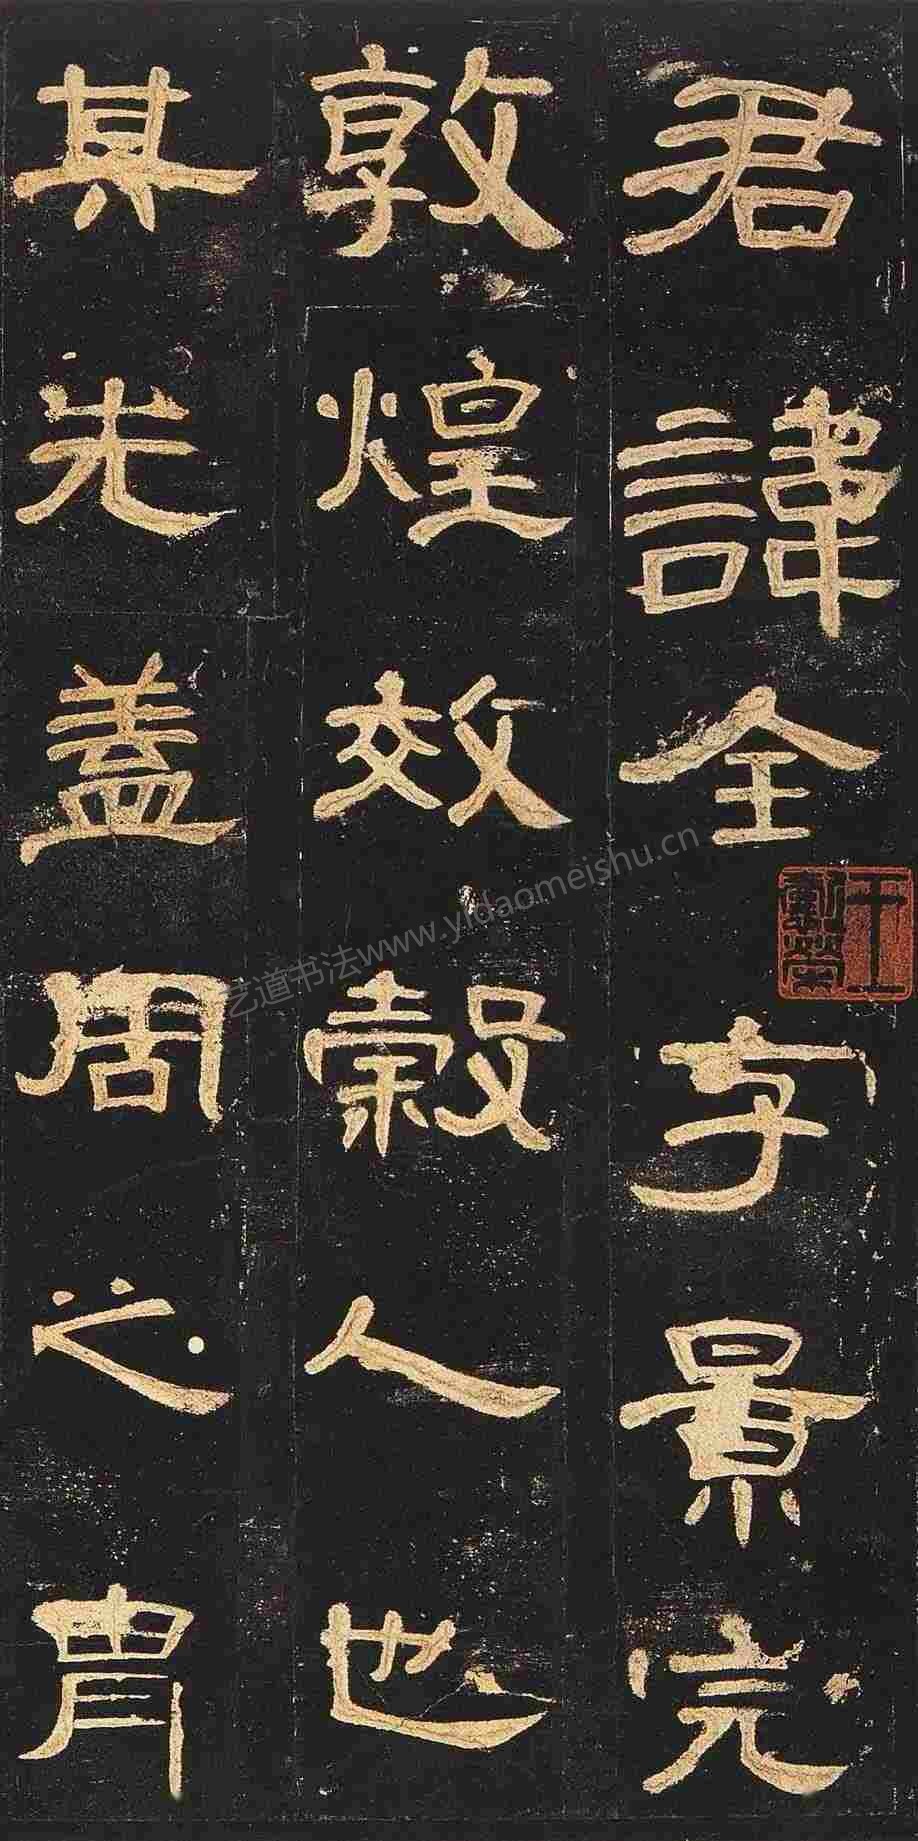 君諱全字景完
敦煌效穀人也
其先蓋周之胄
艺道书法www.yidaomeishu.cn